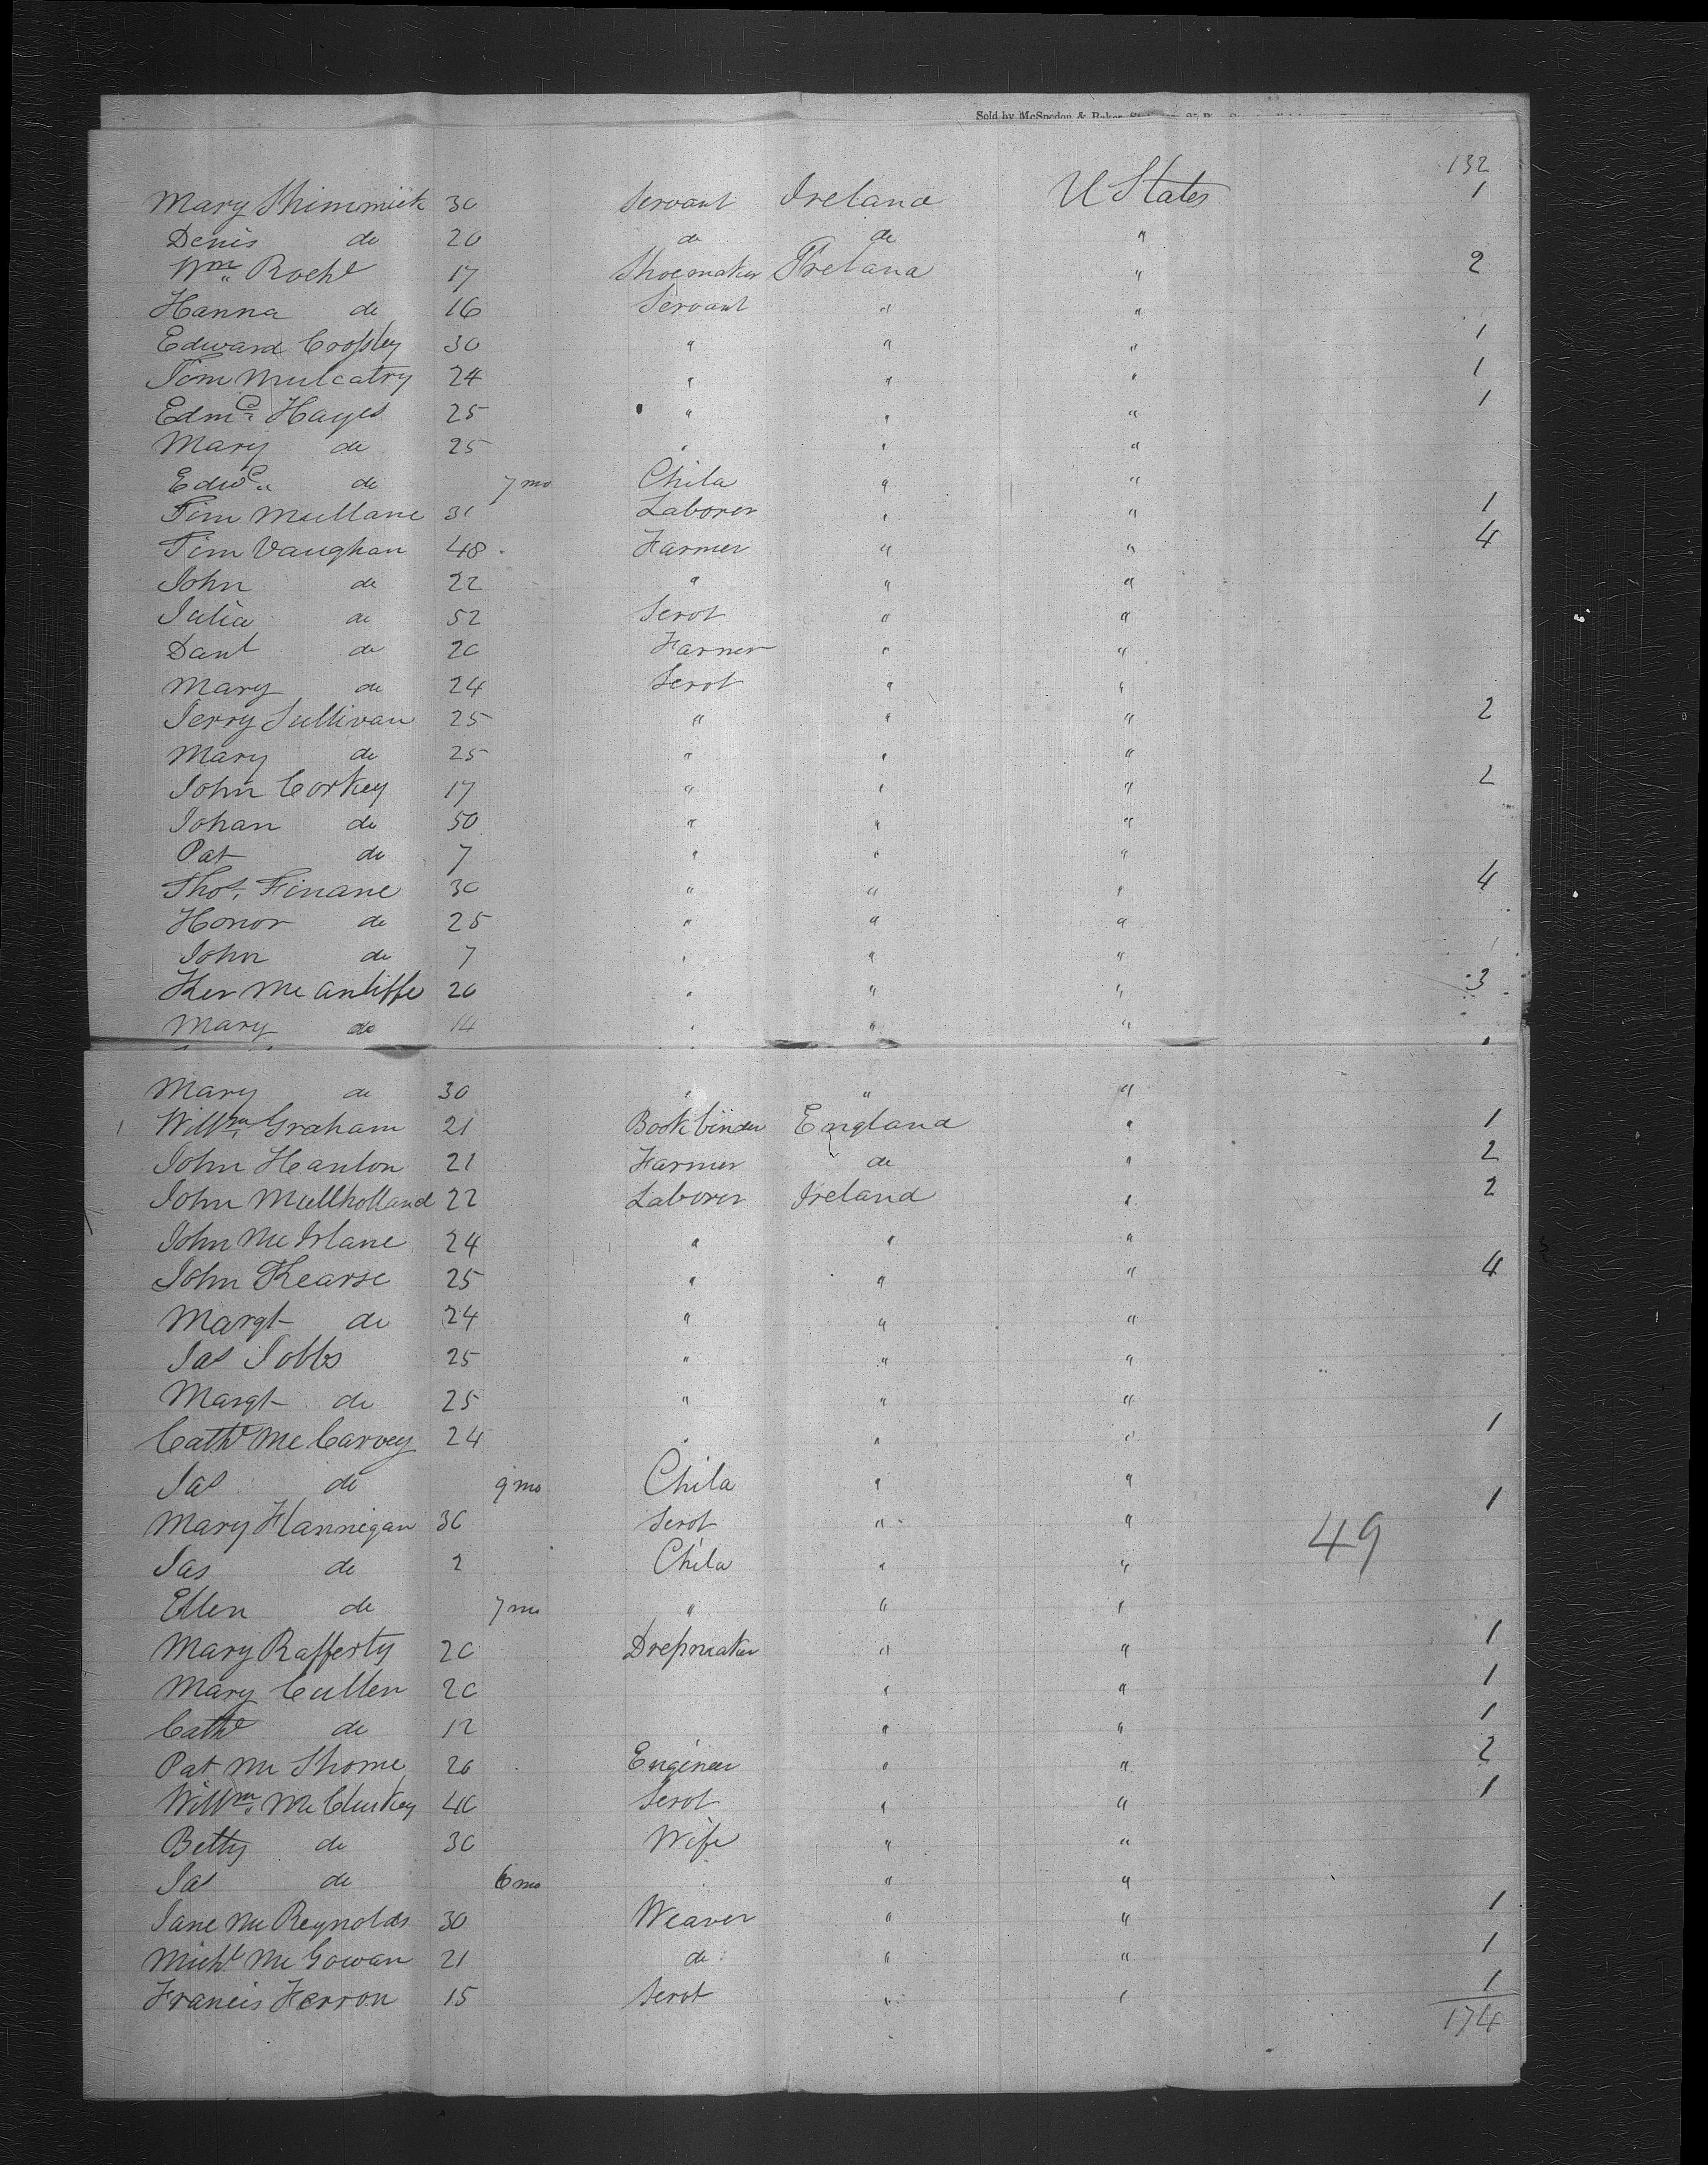 Sold by McSpedon & Baker, Stationers, 25 Pine
132
Mary Shimmick 30 Servant Ireland U States 1
Denis do 20 do do "
Wm Roche 17 Shoemaker Ireland " 2
Hanna do 16 Servant " "
Edward Crossley 30 " " " 1
Tom Mulcatry 24 " " " 1
Edmd Hayes 25 " " " 1
Mary do 25 " " "
Edwd do 7 mo Child " "
Tim Mullane 31 Laborer " " 1
Tim Vaughan 48 Farmer " " 4
John do 22 " " "
Julia do 52 Servt " "
Danl do 20 Farmer " "
Mary do 24 Servt " "
Jerry Sullivan 25 " " " 2
Mary do 25 " " "
John Corkey 17 " " " 2
Johan do 50 " " "
Pat do 7 " " "
Thos. Finane 30 " " " 4
Honor do 25 " " "
John do 7 " " "
Ker Mc Auliffe 20 " " " 3
Mary do 14 " " "
Mary do 30 " " "
Willm Graham 21 Bookbinder England " 1
John Hanlon 21 Farmer do " 2
John Mullholland 22 Laborer Ireland " 2
John Mc Irlane 24 " " "
John Kearse 25 " " " 4
Margt do 24 " " "
Jas Jobbs 25 " " "
Margt do 25 " " "
Cathe Mc Carvey 24 " " " 1
Jas do 9 mo Child " "
Mary Hannegan 30 Servt " " 1
49
Jas do 2 Child " "
Ellen do 7 mo " " "
Mary Rafferty 20 Dressmaker " " 1
Mary Cullen 20 " " 1
Cathe do 12 " " 1
Pat Mc Shome 20 Engineer " " 2
Willm Mc Cluskey 40 Servt " " 1
Betty do 30 Wife " "
Jas do 6 mo " "
Jane Mc Reynolds 30 Weaver " " 1
Michl Mc Gowan 21 do " " 1
Francis Herron 15 Servt " " 1
174